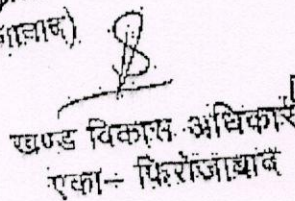 खण्ड विकास अधिकारी
एका- फिरोजाबाद